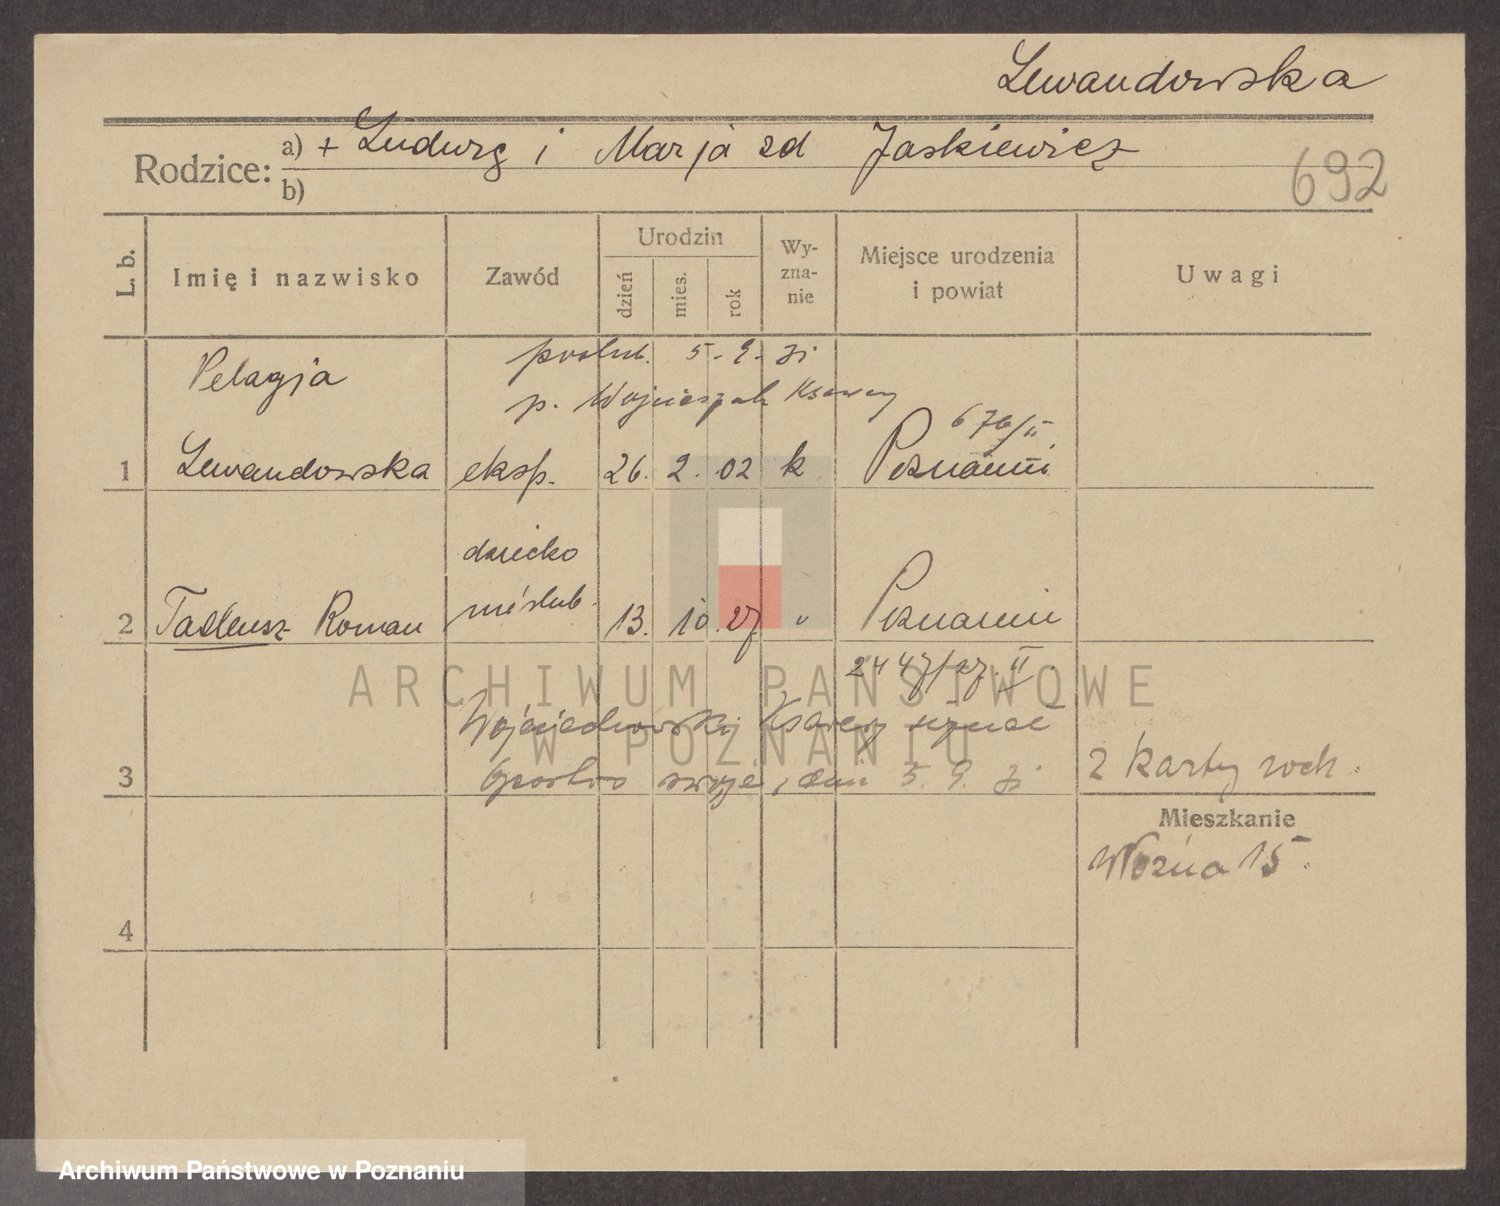 Lewandowska
Rodzice:
a) + Ludwig i Marja zd Jaskiewicz
b)
692
L. b.
Imię i nazwisko
Zawód
Urodzin
dzień
mies.
rok
Wy-
zna-
nie
Miejsce urodzenia
i powiat
Uwagi
poślub. 5-9-31
Pelagja
p. Ksawery
676/II
1 Lewandowska eksp. 26. 2. 02 k Poznaniu
dziecko
nieślub.
2 Tadeusz Roman 13. 10. 27 " Poznaniu
2447/27. II
Ksawery uznał
3 swoje, dnia 5. 9. 31
2 karty
Mieszkanie
Woźna 15.
4
ARCHIWUM PAŃSTWOWE
W POZNANIU
Archiwum Państwowe w Poznaniu